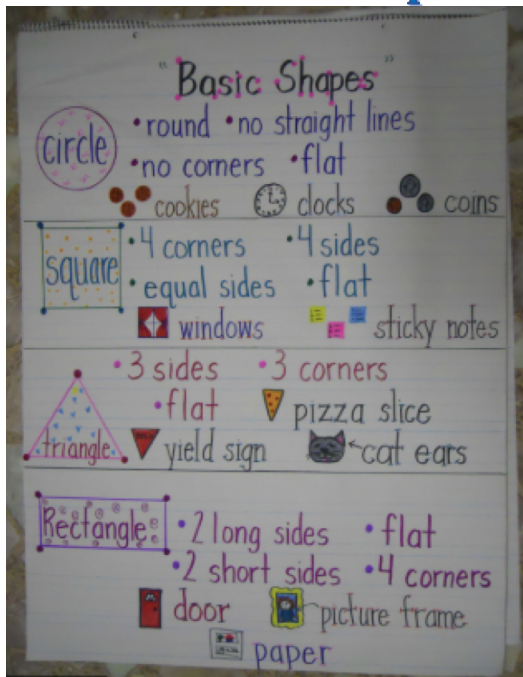 "Basic Shapes"
circle
• round • no straight lines
• no corners • flat
cookies clocks coins
square
• 4 corners • 4 sides
• equal sides • flat
windows sticky notes
• 3 sides • 3 corners
• flat pizza slice
triangle yield sign cat ears
Rectangle
• 2 long sides • flat
• 2 short sides • 4 corners
door picture frame
paper